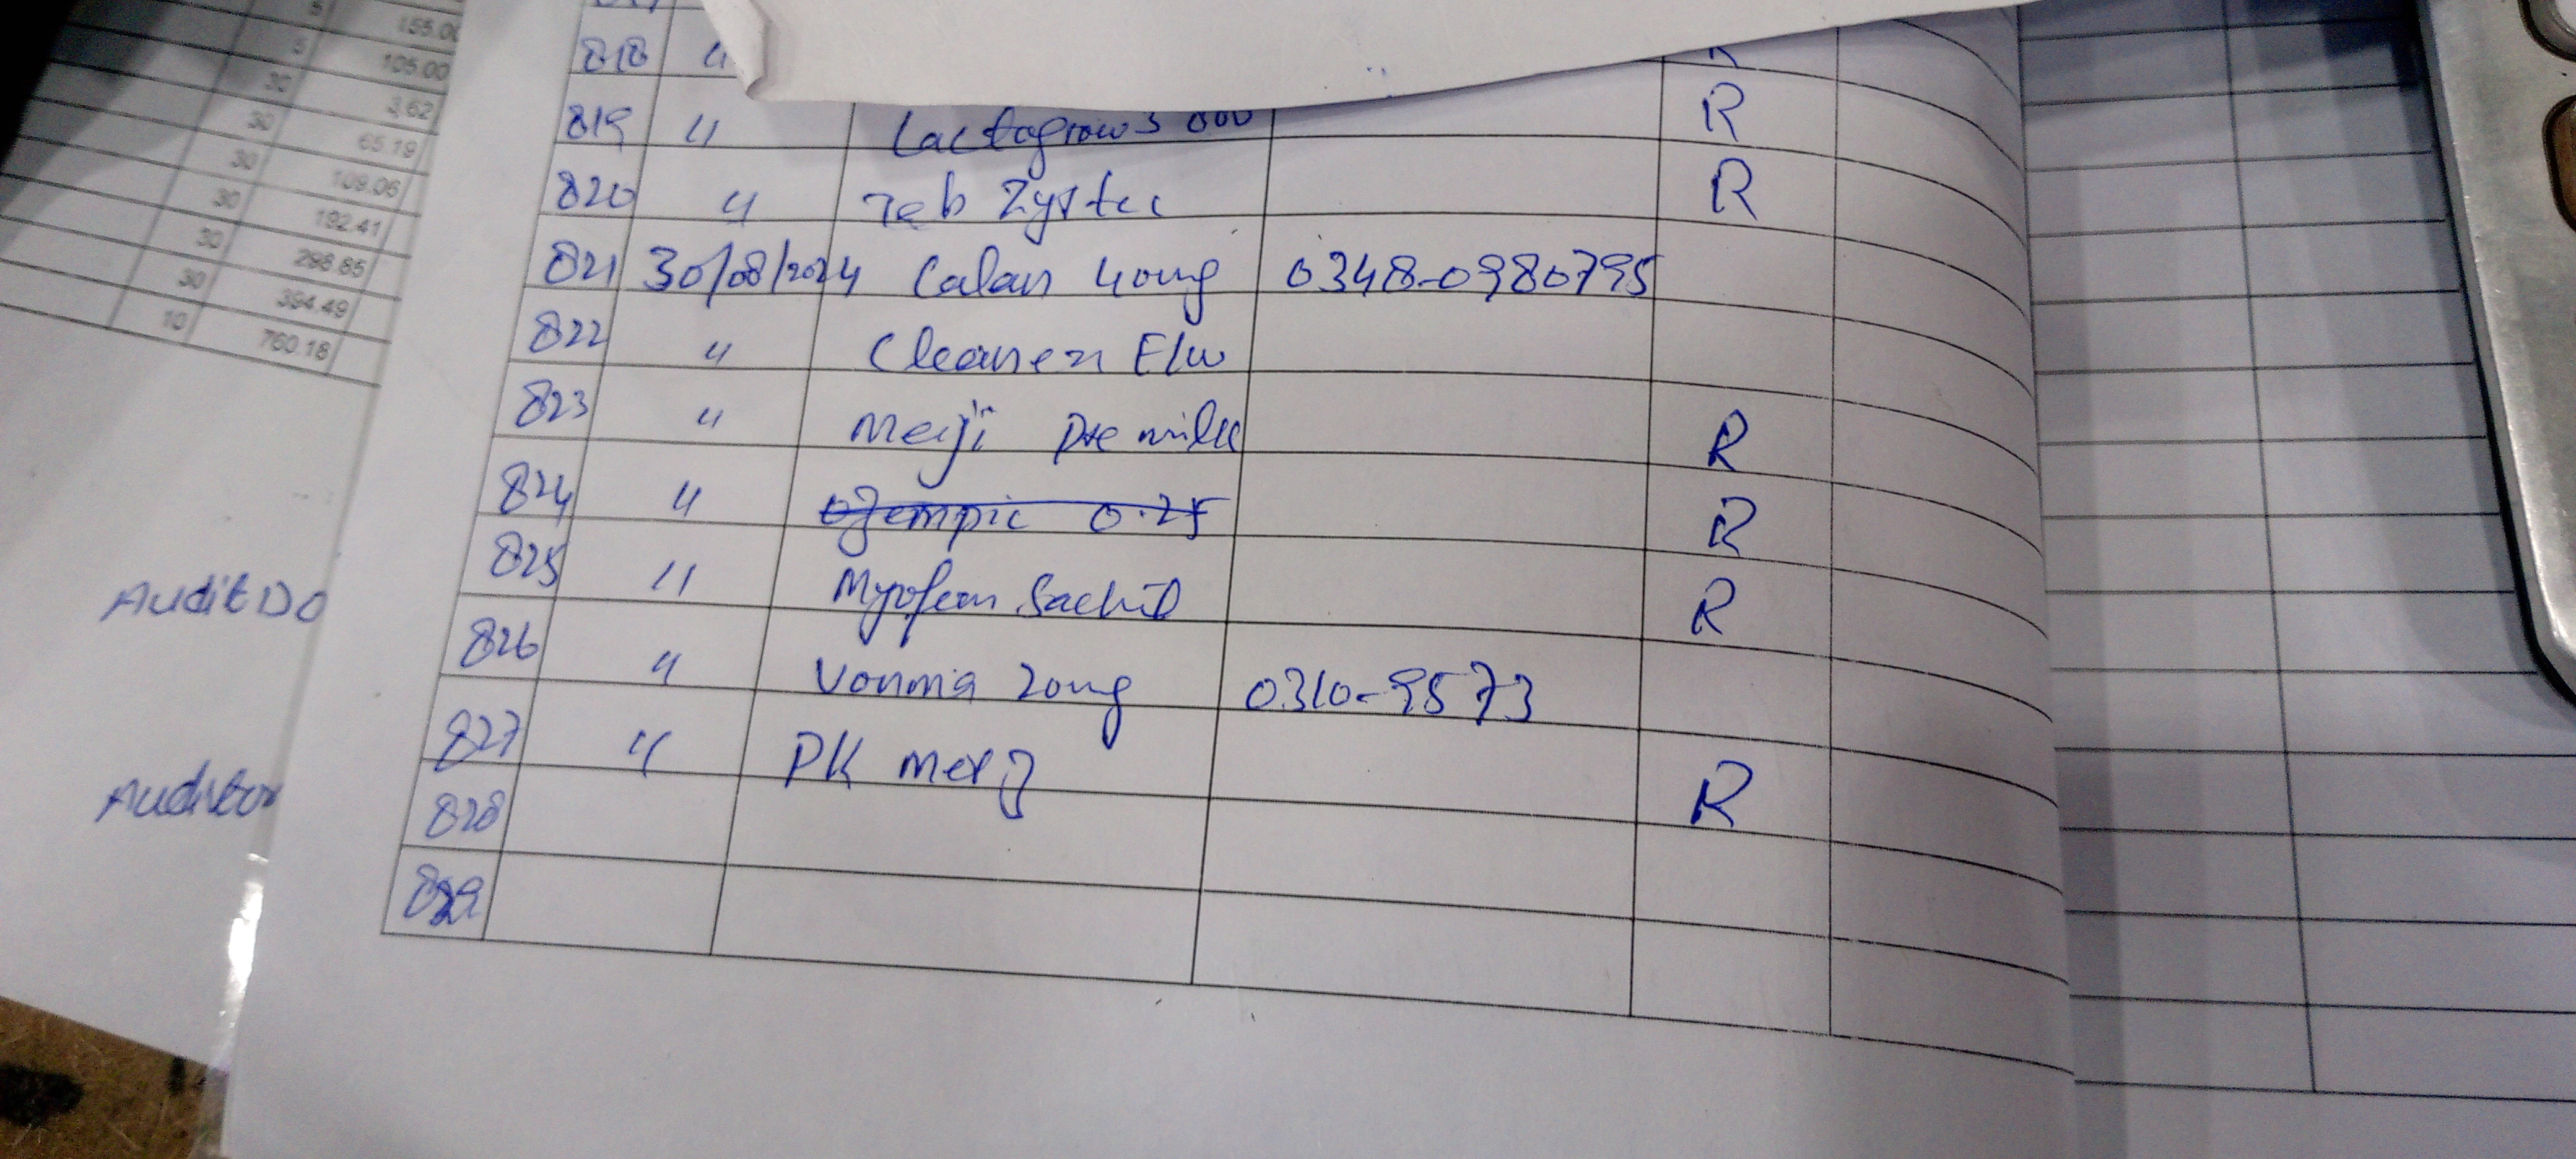 5 155.00
5 105.00
30 3.62
30 65.19
30 109.06
30 192.41
30 298.85
30 394.49
10 760.18
Audit Do
Auditor
818 "
819 " Lactogrow 3 800 R
820 " Tab Zyrtec R
821 30/08/2024 Calan 40mg 0348-0980795
822 " Cleanex E/w
823 " Meiji pre milk R
824 " Ozempic 0.25 R
825 " Myofean Sachit R
826 " Vonma 20mg 0310-9573
827 " PK merz R
828
829